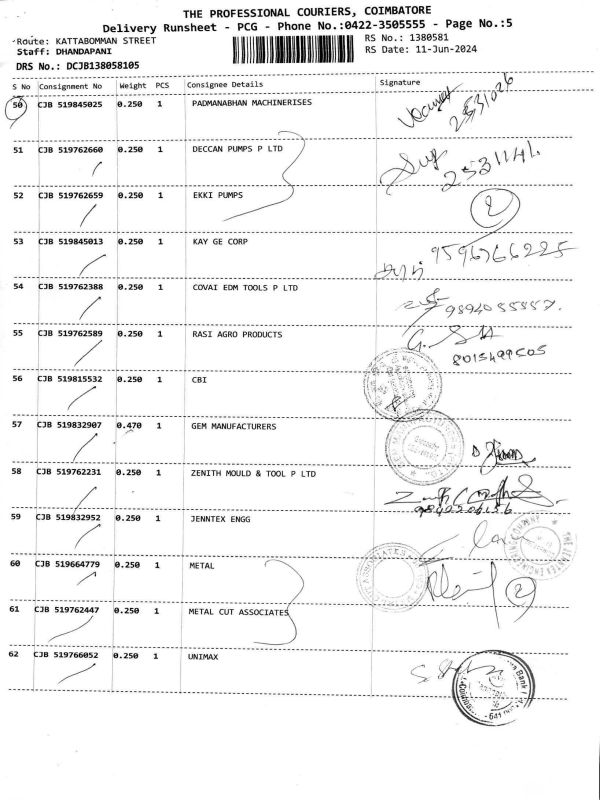 THE PROFESSIONAL COURIERS, COIMBATORE
Delivery Runsheet - PCG - Phone No.:0422-3505555 - Page No.:5
Route: KATTABOMMAN STREET
RS No.: 1380581
Staff: DHANDAPANI
RS Date: 11-Jun-2024
DRS No.: DCJB138058105
S No Consignment No Weight PCS Consignee Details Signature
50 CJB 519845025 0.250 1 PADMANABHAN MACHINERISES
2531026
51 CJB 519762660 0.250 1 DECCAN PUMPS P LTD
2531141.
52 CJB 519762659 0.250 1 EKKI PUMPS
2
53 CJB 519845013 0.250 1 KAY GE CORP
9596766225
54 CJB 519762388 0.250 1 COVAI EDM TOOLS P LTD
55 CJB 519762589 0.250 1 RASI AGRO PRODUCTS
8015499505
56 CJB 519815532 0.250 1 CBI
57 CJB 519832907 0.470 1 GEM MANUFACTURERS
58 CJB 519762231 0.250 1 ZENITH MOULD & TOOL P LTD
59 CJB 519832952 0.250 1 JENNTEX ENGG
60 CJB 519664779 0.250 1 METAL
2
61 CJB 519762447 0.250 1 METAL CUT ASSOCIATES
62 CJB 519766052 0.250 1 UNIMAX